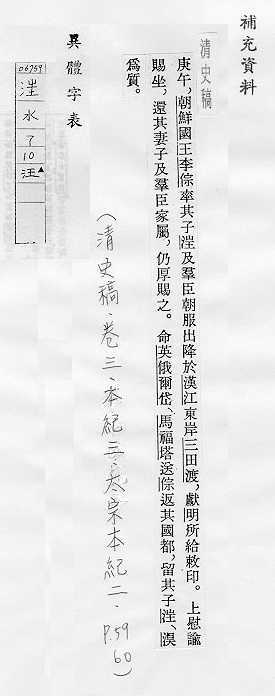 補充資料
清史稿
庚午，朝鮮國王李倧率其子𣳫及羣臣朝服出降於漢江東岸三田渡，獻明所給敕印。上慰諭
賜坐，還其妻子及羣臣家屬，仍厚賜之。命英俄爾岱、馬福塔送倧返其國都，留其子𣳫、淏
為質。
（清史稿．卷三．本紀三．太宗本紀二．P.59
60）
異體字表
06759
水
7
10
汪▲